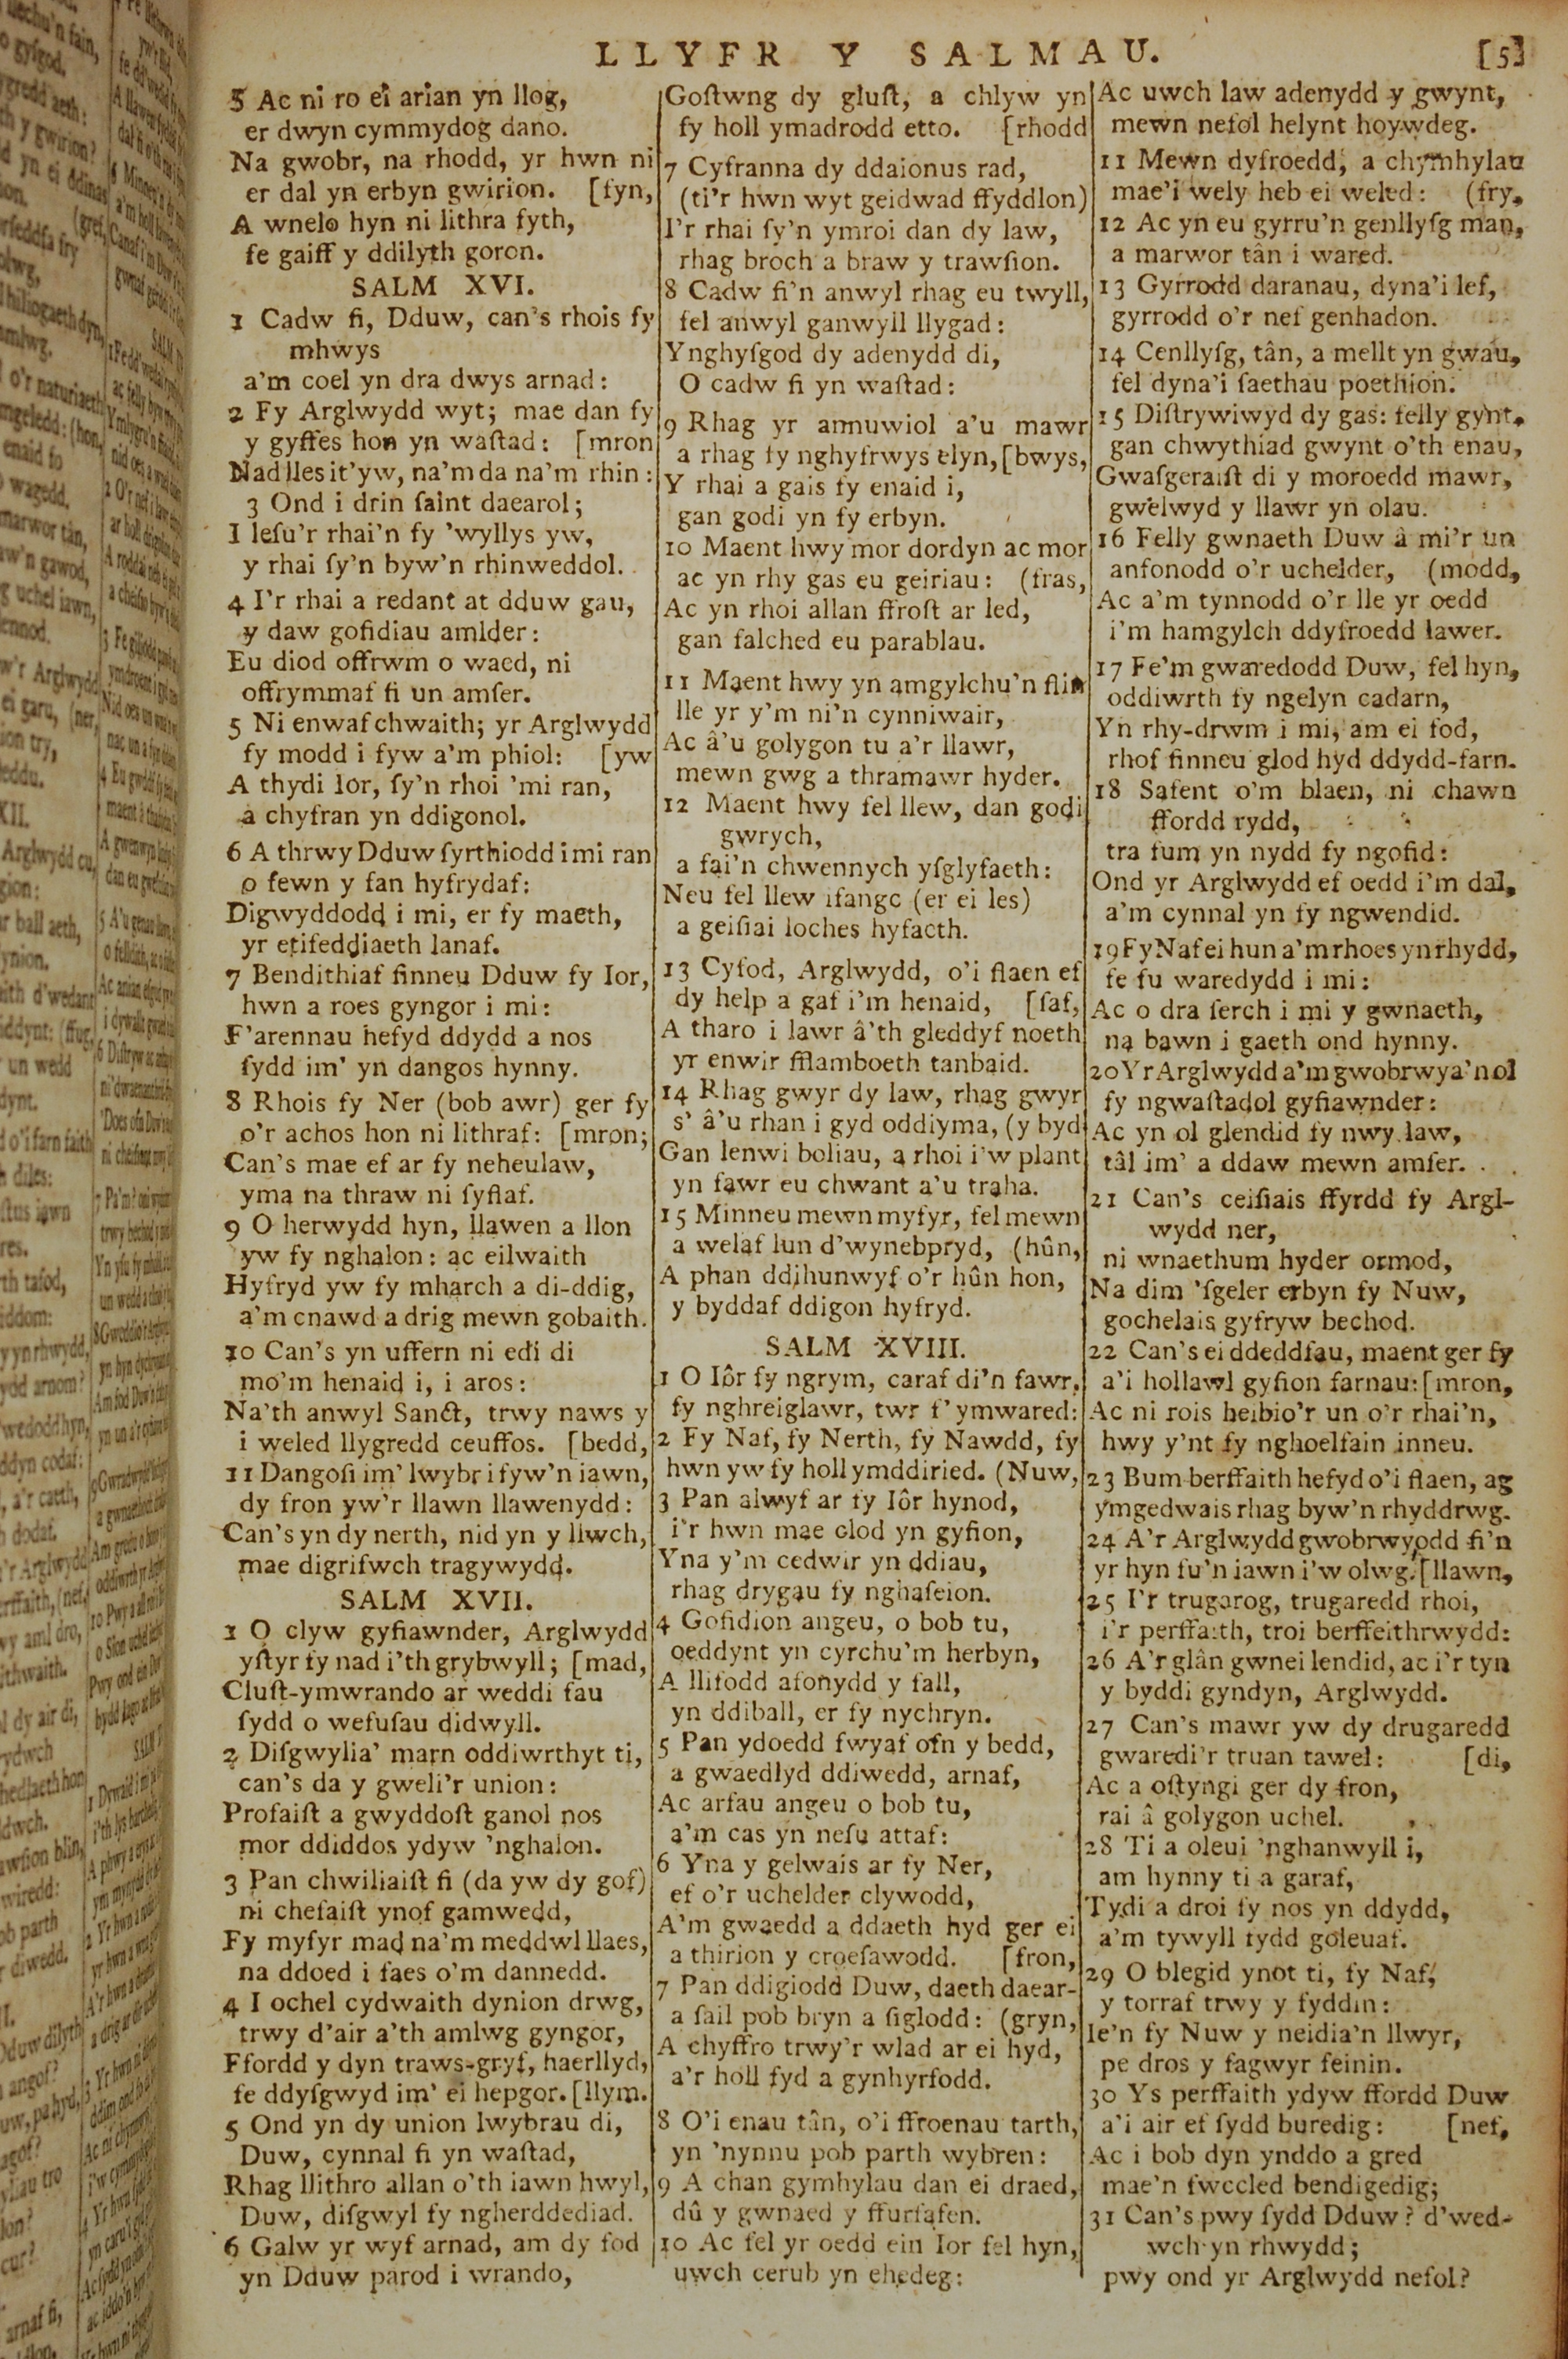 LLYFR Y SALMAU. [5]
5 Ac ni ro ei arian yn llog,
er dwyn cymmydog dano.
Na gwobr, na rhodd, yr hwn ni
er dal yn erbyn gwirion. [fyn,
A wnelo hyn ni lithra fyth,
fe gaiff y ddilyth goron.
SALM XVI.
1 Cadw fi, Dduw, can's rhois fy
mhwys
a'm coel yn dra dwys arnad:
2 Fy Arglwydd wyt; mae dan fy
y gyffes hon yn waſtad: [mron
Nad lles it'yw, na'm da na'm rhin:
3 Ond i drin ſaint daearol;
I leſu'r rhai'n fy 'wyllys yw,
y rhai ſy'n byw'n rhinweddol.
4 I'r rhai a redant at dduw gau,
y daw gofidiau amlder:
Eu diod offrwm o waed, ni
offrymmaf fi un amſer.
5 Ni enwaf chwaith; yr Arglwydd
fy modd i fyw a'm phiol: [yw
A thydi Ior, ſy'n rhoi 'mi ran,
a chyfran yn ddigonol.
6 A thrwy Dduw ſyrthiodd imi ran
o fewn y fan hyfrydaf:
Digwyddodd i mi, er fy maeth,
yr etifeddiaeth lanaf.
7 Bendithiaf finneu Dduw fy Ior,
hwn a roes gyngor i mi:
F'arennau hefyd ddydd a nos
ſydd im' yn dangos hynny.
8 Rhois fy Ner (bob awr) ger fy
o'r achos hon ni lithraf: [mron;
Can's mae ef ar fy neheulaw,
yma na thraw ni ſyflaf.
9 O herwydd hyn, llawen a llon
yw fy nghalon: ac eilwaith
Hyfryd yw fy mharch a di-ddig,
a'm cnawd a drig mewn gobaith.
10 Can's yn uffern ni edi di
mo'm henaid i, i aros:
Na'th anwyl Sanct, trwy naws y
i weled llygredd ceuffos. [bedd,
11 Dangoſi im' lwybr i fyw'n iawn,
dy fron yw'r llawn llawenydd:
Can's yn dy nerth, nid yn y llwch,
mae digrifwch tragywydd.
SALM XVII.
1 O clyw gyfiawnder, Arglwydd
yſtyr fy nad i'th grybwyll; [mad,
Cluſt-ymwrando ar weddi fau
ſydd o wefuſau didwyll.
2 Diſgwylia' marn oddiwrthyt ti,
can's da y gweli'r union:
Profaiſt a gwyddoſt ganol nos
mor ddiddos ydyw 'nghalon.
3 Pan chwiliaiſt fi (da yw dy gof)
ni chefaiſt ynof gamwedd,
Fy myfyr mad na'm meddwl llaes,
na ddoed i faes o'm dannedd.
4 I ochel cydwaith dynion drwg,
trwy d'air a'th amlwg gyngor,
Ffordd y dyn traws-gryf, haerllyd,
fe ddyſgwyd im' ei hepgor. [llym.
5 Ond yn dy union lwybrau di,
Duw, cynnal fi yn waſtad,
Rhag llithro allan o'th iawn hwyl,
Duw, diſgwyl fy ngherddediad.
6 Galw yr wyf arnad, am dy fod
yn Dduw parod i wrando,
Goſtwng dy gluſt, a chlyw yn
fy holl ymadrodd etto. [rhodd
7 Cyfranna dy ddaionus rad,
(ti'r hwn wyt geidwad ffyddlon)
I'r rhai ſy'n ymroi dan dy law,
rhag broch a braw y trawſion.
8 Cadw fi'n anwyl rhag eu twyll,
fel anwyl ganwyll llygad:
Ynghyſgod dy adenydd di,
O cadw fi yn waſtad:
9 Rhag yr annuwiol a'u mawr
a rhag fy nghyfrwys elyn, [bwys,
Y rhai a gais fy enaid i,
gan godi yn fy erbyn.
10 Maent hwy mor dordyn ac mor
ac yn rhy gas eu geiriau: (fras,
Ac yn rhoi allan ffroſt ar led,
gan falched eu parablau.
11 Maent hwy yn amgylchu'n flin
lle yr y'm ni'n cynniwair,
Ac â'u golygon tu a'r llawr,
mewn gwg a thramawr hyder.
12 Maent hwy fel llew, dan godi
gwrych,
a fai'n chwennych yſglyfaeth:
Neu fel llew ifangc (er ei les)
a geiſiai loches hyfaeth.
13 Cyfod, Arglwydd, o'i flaen ef
dy help a gaf i'm henaid, [ſaf,
A tharo i lawr â'th gleddyf noeth
yr enwir fflamboeth tanbaid.
14 Rhag gwyr dy law, rhag gwyr
s' â'u rhan i gyd oddiyma, (y byd
Gan lenwi boliau, a rhoi i'w plant
yn fawr eu chwant a'u traha.
15 Minneu mewn myfyr, fel mewn
a welaf lun d'wynebpryd, (hûn,
A phan ddihunwyf o'r hûn hon,
y byddaf ddigon hyfryd.
SALM XVIII.
1 O Iôr fy ngrym, caraf di'n fawr,
fy nghreiglawr, twr f'ymwared:
2 Fy Naf, fy Nerth, fy Nawdd, fy
hwn yw fy holl ymddiried. (Nuw,
3 Pan alwyf ar fy Iôr hynod,
i'r hwn mae clod yn gyfion,
Yna y'm cedwir yn ddiau,
rhag drygau fy nghaſeion.
4 Gofidion angeu, o bob tu,
oeddynt yn cyrchu'm herbyn,
A llifodd afonydd y fall,
yn ddiball, er fy nychryn.
5 Pan ydoedd fwyaf ofn y bedd,
a gwaedlyd ddiwedd, arnaf,
Ac arfau angeu o bob tu,
a'm cas yn neſu attaf:
6 Yna y gelwais ar fy Ner,
ef o'r uchelder clywodd,
A'm gwaedd a ddaeth hyd ger ei
a thirion y croeſawodd. [fron,
7 Pan ddigiodd Duw, daeth daear-
a ſail pob bryn a ſiglodd: (gryn,
A chyffro trwy'r wlad ar ei hyd,
a'r holl fyd a gynhyrfodd.
8 O'i enau tân, o'i ffroenau tarth,
yn 'nynnu pob parth wybren:
9 A chan gymhylau dan ei draed,
dû y gwnaed y ffurfafen.
10 Ac fel yr oedd ein Ior fel hyn,
uwch cerub yn ehedeg:
Ac uwch law adenydd y gwynt,
mewn nefol helynt hoywdeg.
11 Mewn dyfroedd, a chymhylau
mae'i wely heb ei weled: (fry,
12 Ac yn eu gyrru'n genllyſg man,
a marwor tân i wared.
13 Gyrrodd daranau, dyna'i lef,
gyrrodd o'r nef genhadon.
14 Cenllyſg, tân, a mellt yn gwau,
fel dyna'i ſaethau poethion.
15 Diſtrywiwyd dy gas: felly gynt,
gan chwythiad gwynt o'th enau,
Gwaſgeraiſt di y moroedd mawr,
gwelwyd y llawr yn olau.
16 Felly gwnaeth Duw â mi'r un
anfonodd o'r uchelder, (modd,
Ac a'm tynnodd o'r lle yr oedd
i'm hamgylch ddyfroedd lawer.
17 Fe'm gwaredodd Duw, fel hyn,
oddiwrth fy ngelyn cadarn,
Yn rhy-drwm i mi, am ei fod,
rhof finneu glod hyd ddydd-farn.
18 Safent o'm blaen, ni chawn
ffordd rydd,
tra fum yn nydd fy ngofid:
Ond yr Arglwydd ef oedd i'm dal,
a'm cynnal yn fy ngwendid.
19 Fy Naf ei hun a'm rhoes yn rhydd,
fe fu waredydd i mi:
Ac o dra ſerch i mi y gwnaeth,
na bawn i gaeth ond hynny.
20 Yr Arglwydd a'm gwobrwya'n ol
fy ngwaſtadol gyfiawnder:
Ac yn ol glendid fy nwy law,
tâl im' a ddaw mewn amſer.
21 Can's ceiſiais ffyrdd fy Argl-
wydd ner,
ni wnaethum hyder ormod,
Na dim 'ſgeler erbyn fy Nuw,
gochelais gyfryw bechod.
22 Can's ei ddeddfau, maent ger fy
a'i hollawl gyfion farnau: [mron,
Ac ni rois heibio'r un o'r rhai'n,
hwy y'nt fy nghoelfain inneu.
23 Bum berffaith hefyd o'i flaen, ag
ymgedwais rhag byw'n rhyddrwg.
24 A'r Arglwydd gwobrwyodd fi'n
yr hyn fu'n iawn i'w olwg. [llawn,
25 I'r trugarog, trugaredd rhoi,
i'r perffaith, troi berffeithrwydd:
26 A'r glân gwnei lendid, ac i'r tyn
y byddi gyndyn, Arglwydd.
27 Can's mawr yw dy drugaredd
gwaredi'r truan tawel: [di,
Ac a oſtyngi ger dy fron,
rai â golygon uchel.
28 Ti a oleui 'nghanwyll i,
am hynny ti a garaf,
Tydi a droi fy nos yn ddydd,
a'm tywyll fydd goleuaf.
29 O blegid ynot ti, fy Naf,
y torraf trwy y fyddin:
Ie'n fy Nuw y neidia'n llwyr,
pe dros y fagwyr feinin.
30 Ys perffaith ydyw ffordd Duw
a'i air ef ſydd buredig: [nef,
Ac i bob dyn ynddo a gred
mae'n fwccled bendigedig;
31 Can's pwy ſydd Dduw? d'wed-
wch yn rhwydd;
pwy ond yr Arglwydd nefol?